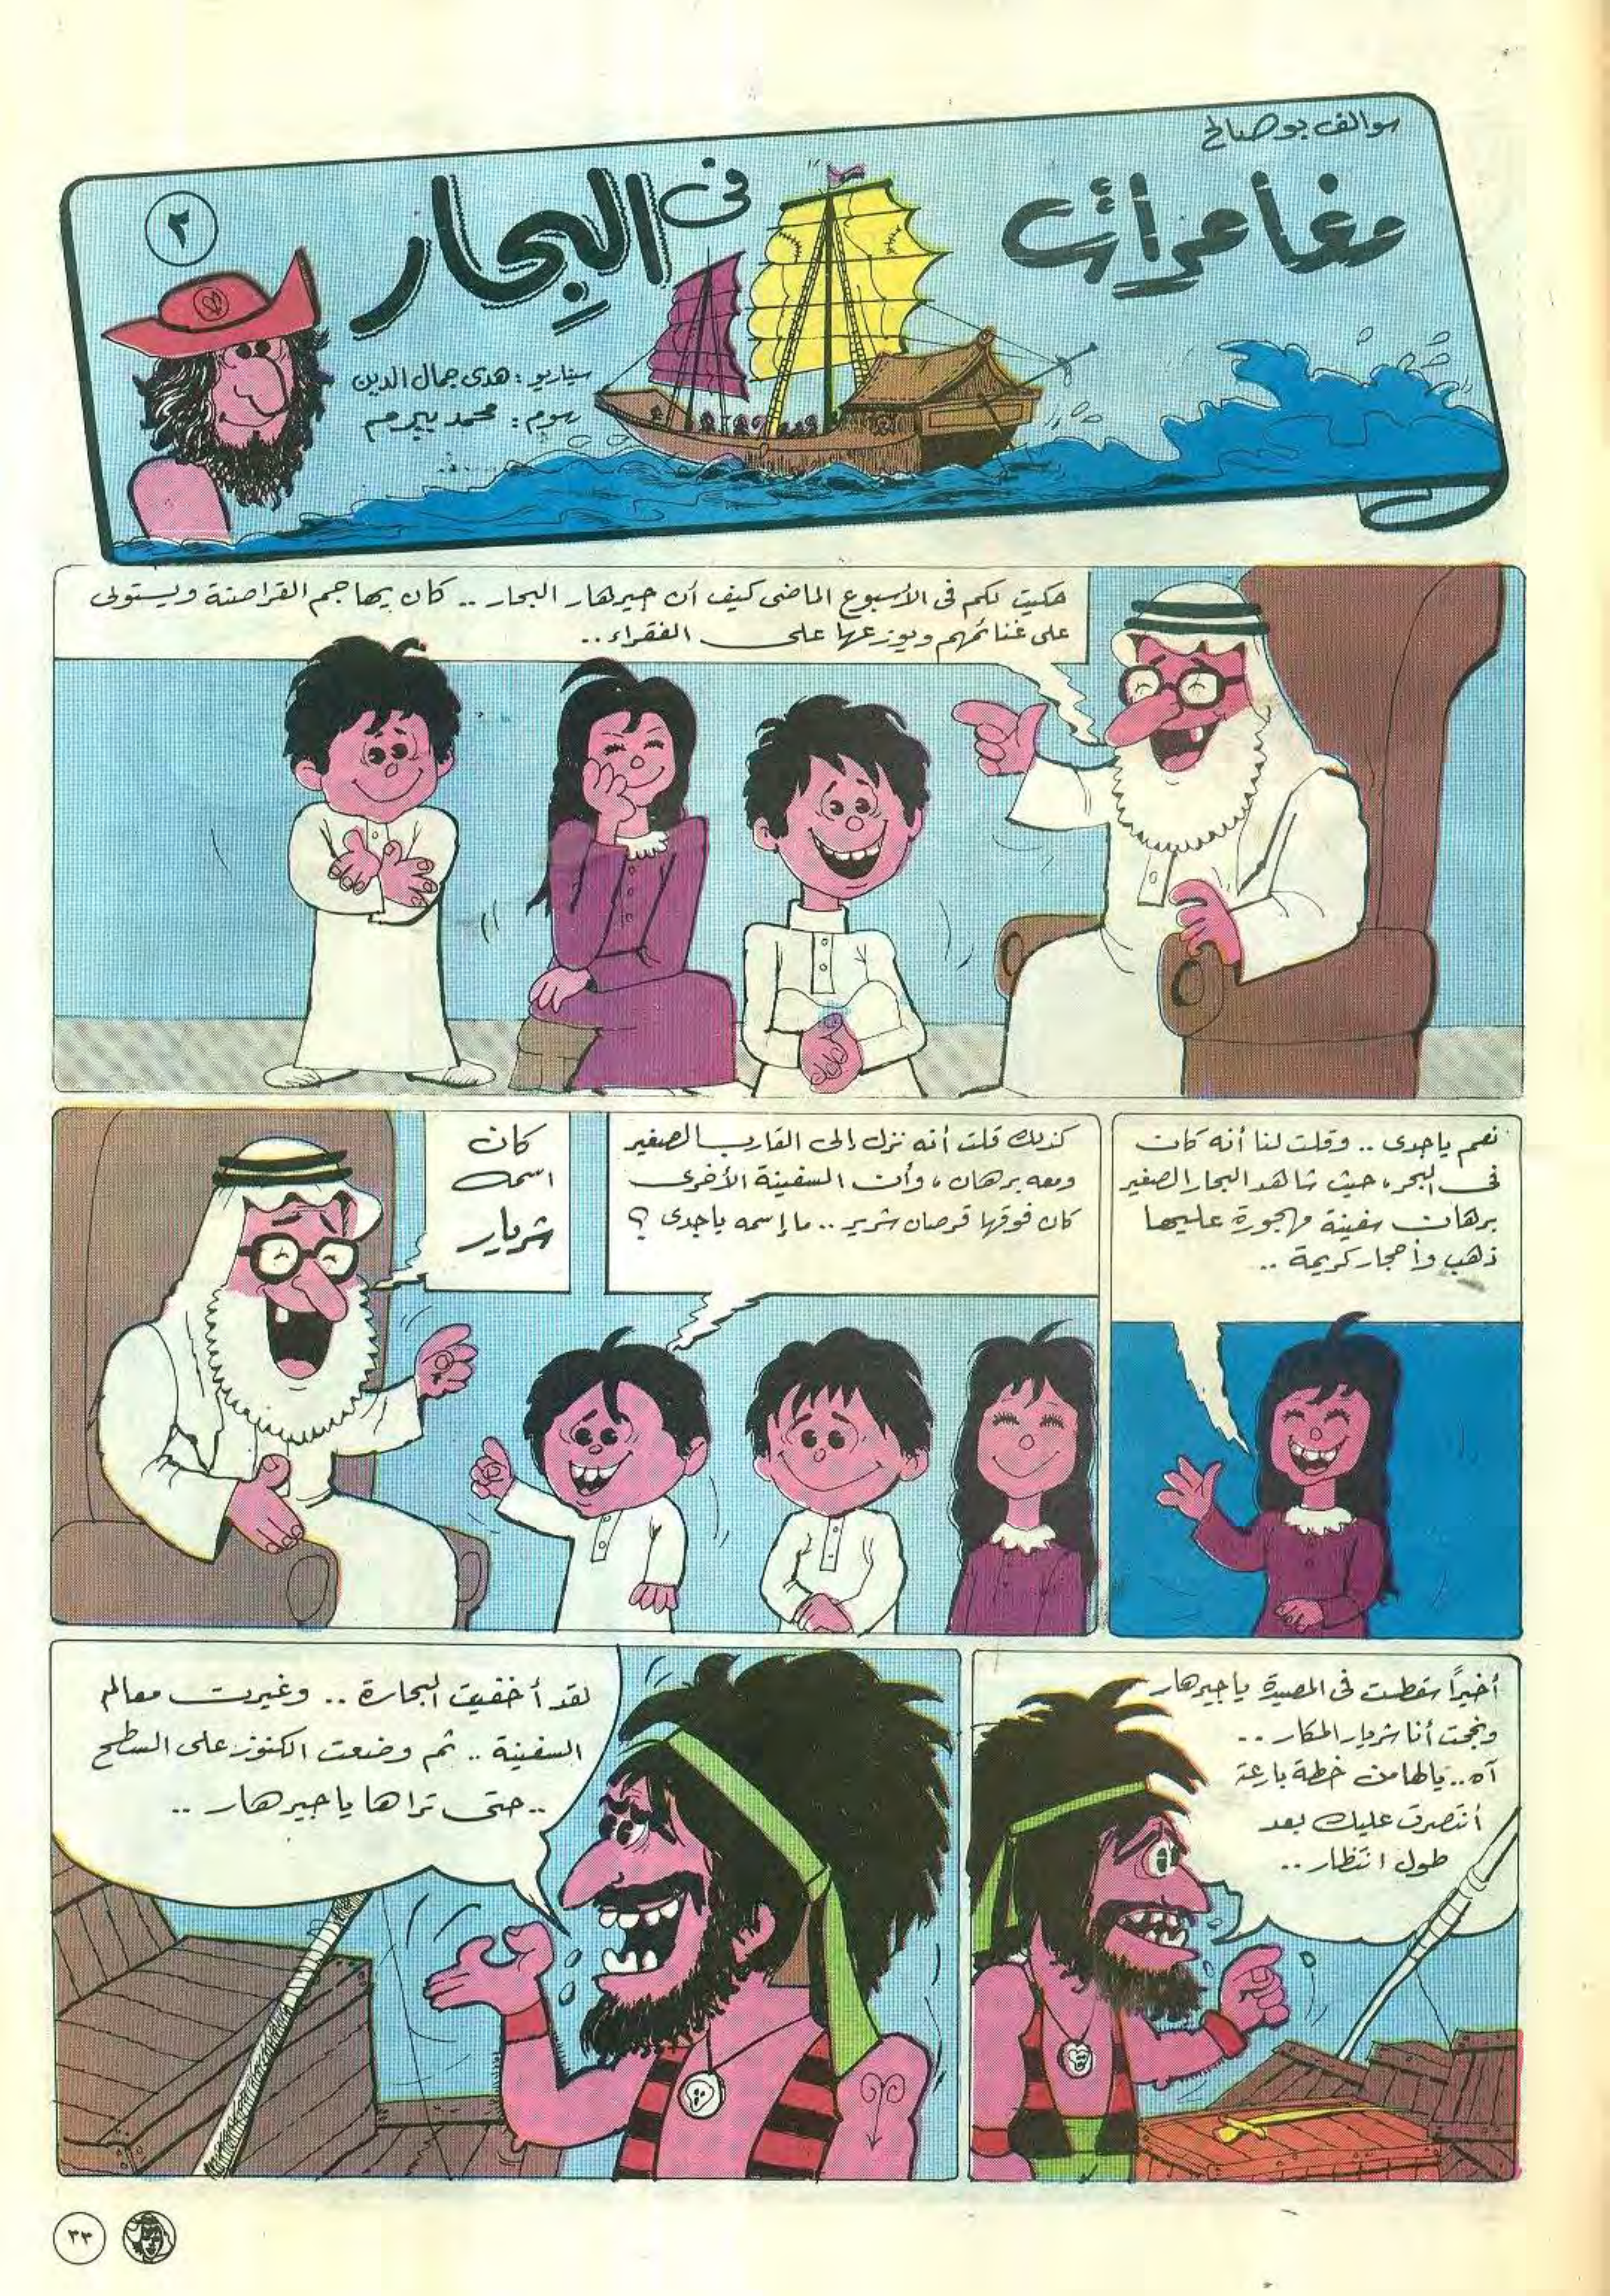 سوالف بوصالح
مغامرات
فى البحار
٢
سيناريو : هدى جمال الدين
رسوم : محمد بيرم
حكيت لكم فى الأسبوع الماضى كيف أن جيرهار البحار .. كان يهاجم القراصنة ويستولى
على غنائمهم ويوزعها على الفقراء ..
نعم ياجدى .. وقلت لنا أنه كان
فى البحر، حيث شاهد البحار الصغير
برهان سفينة مهجورة عليها
ذهب وأحجار كريمة ..
كذلك قلت أنه نزل إلى القارب الصغير
ومعه برهان، وأن السفينة الأخرى
كان فوقها قرصان شرير .. ما إسمه ياجدى ؟
كان
اسمه
شريار
أخيراً سقطت فى المصيدة ياجيرهار
ونجحت أنا شريار المكار ..
آه .. يالها من خطة بارعة
أنتصرت عليك بعد
طول انتظار ..
لقد أخفيت البحارة .. وغيرت معالم
السفينة .. ثم وضعت الكنوز على السطح
.. حتى تراها ياجيرهار ..
٣٣